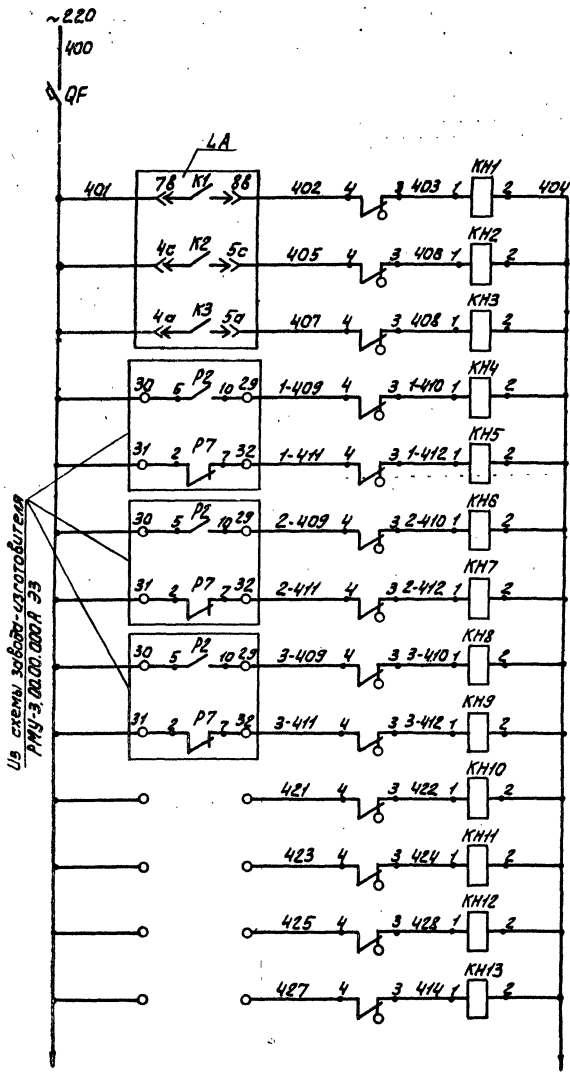 ~220
400
QF
4A
401 7в К1 8в 402 4 3 403 1 КН1 2 404
4с К2 5с 405 4 3 408 1 КН2 2
4а К3 5а 407 4 3 408 1 КН3 2
30 6 Р2 10 29 1-409 4 3 1-410 1 КН4 2
31 2 Р7 7 32 1-411 4 3 1-412 1 КН5 2
30 5 Р2 10 29 2-409 4 3 2-410 1 КН6 2
31 2 Р7 7 32 2-411 4 3 2-412 1 КН7 2
30 5 Р2 10 29 3-409 4 3 3-410 1 КН8 2
31 2 Р7 7 32 3-411 4 3 3-412 1 КН9 2
421 4 3 422 1 КН10 2
423 4 3 424 1 КН11 2
425 4 3 428 1 КН12 2
427 4 3 414 1 КН13 2
Из схемы завода-изготовителя
РМУ-3.00.00.000А ЭЗ